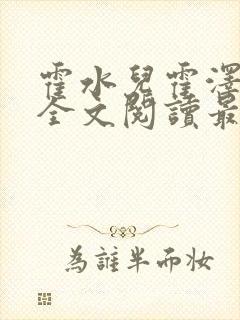 霍水兒霍澤
全文閱讀最
為誰半而妝